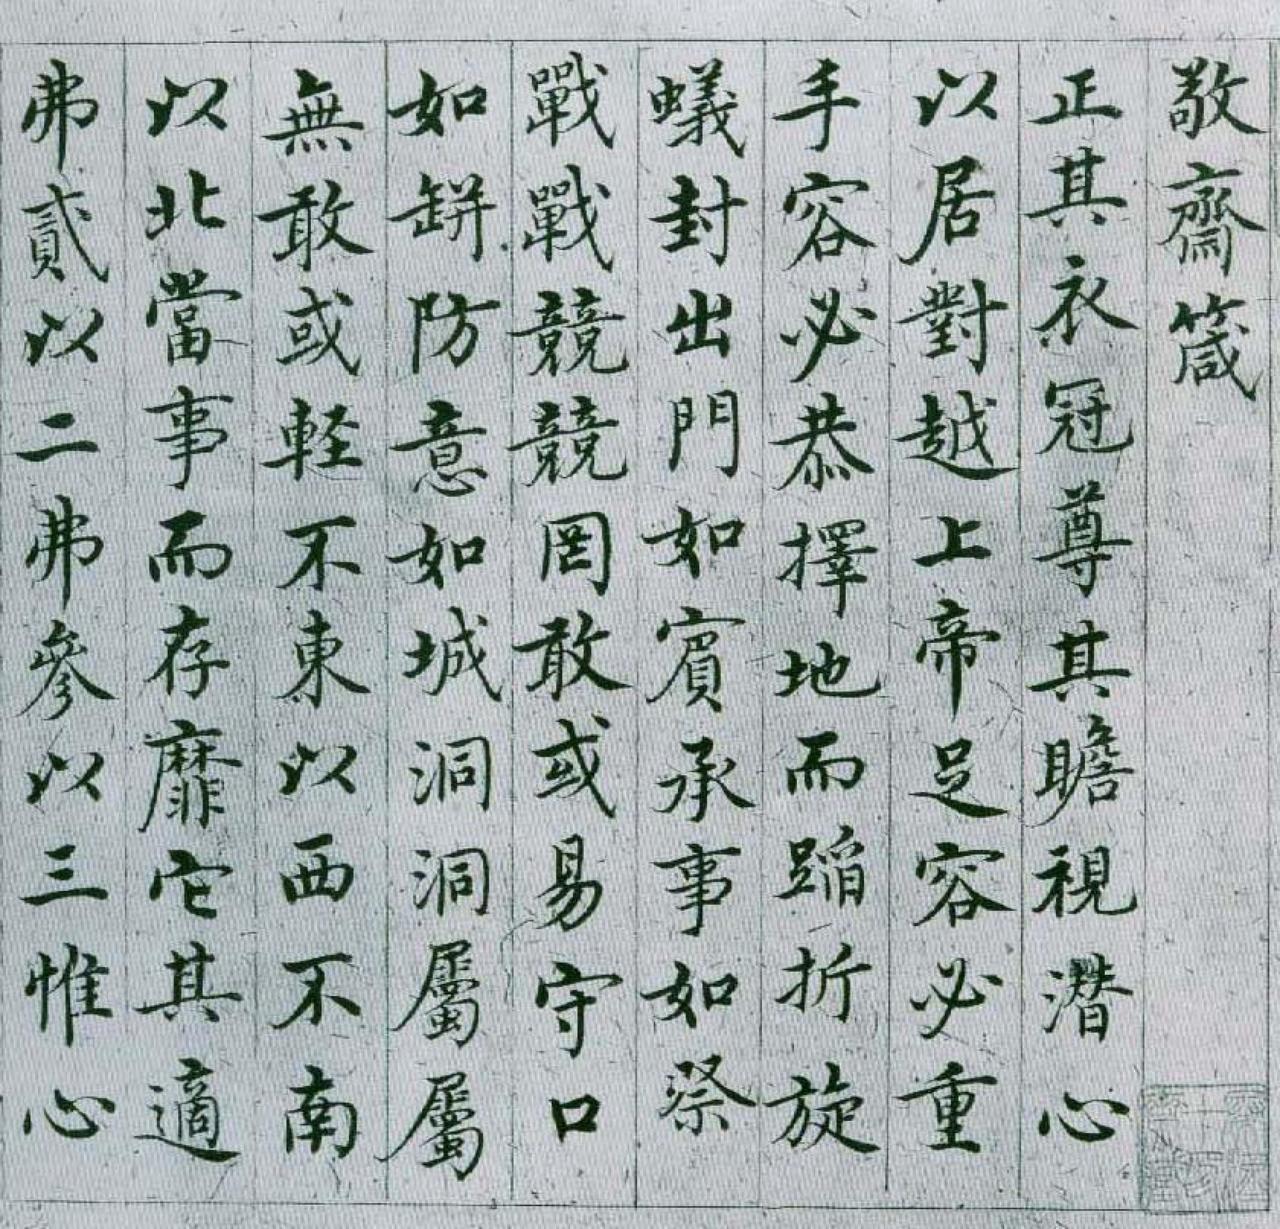 敬齋箴
正其衣冠尊其瞻視潜心
以居對越上帝足容必重
手容必恭擇地而蹈折旋
蟻封出門如賓承事如祭
戰戰競競罔敢或易守口
如缾防意如城洞洞屬屬
無敢或軽不東以西不南
以北當事而存靡它其適
弗貳以二弗參以三惟心